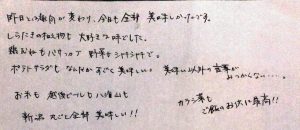 昨日とは趣向が変わり、今日も全部 美味しかったです。
しらたきの和え物も大好きな味でした。
鶏むねもパサつかず 野菜もシャキシャキで。
ポテトサラダも なんだかすごく美味しい。 美味しい以外の言葉が
みつからない……。
お米も 越後ビールも八海山も
カラシ菜も
新潟 丸ごと全部 美味しい!!
ご飯のお供に最高!!